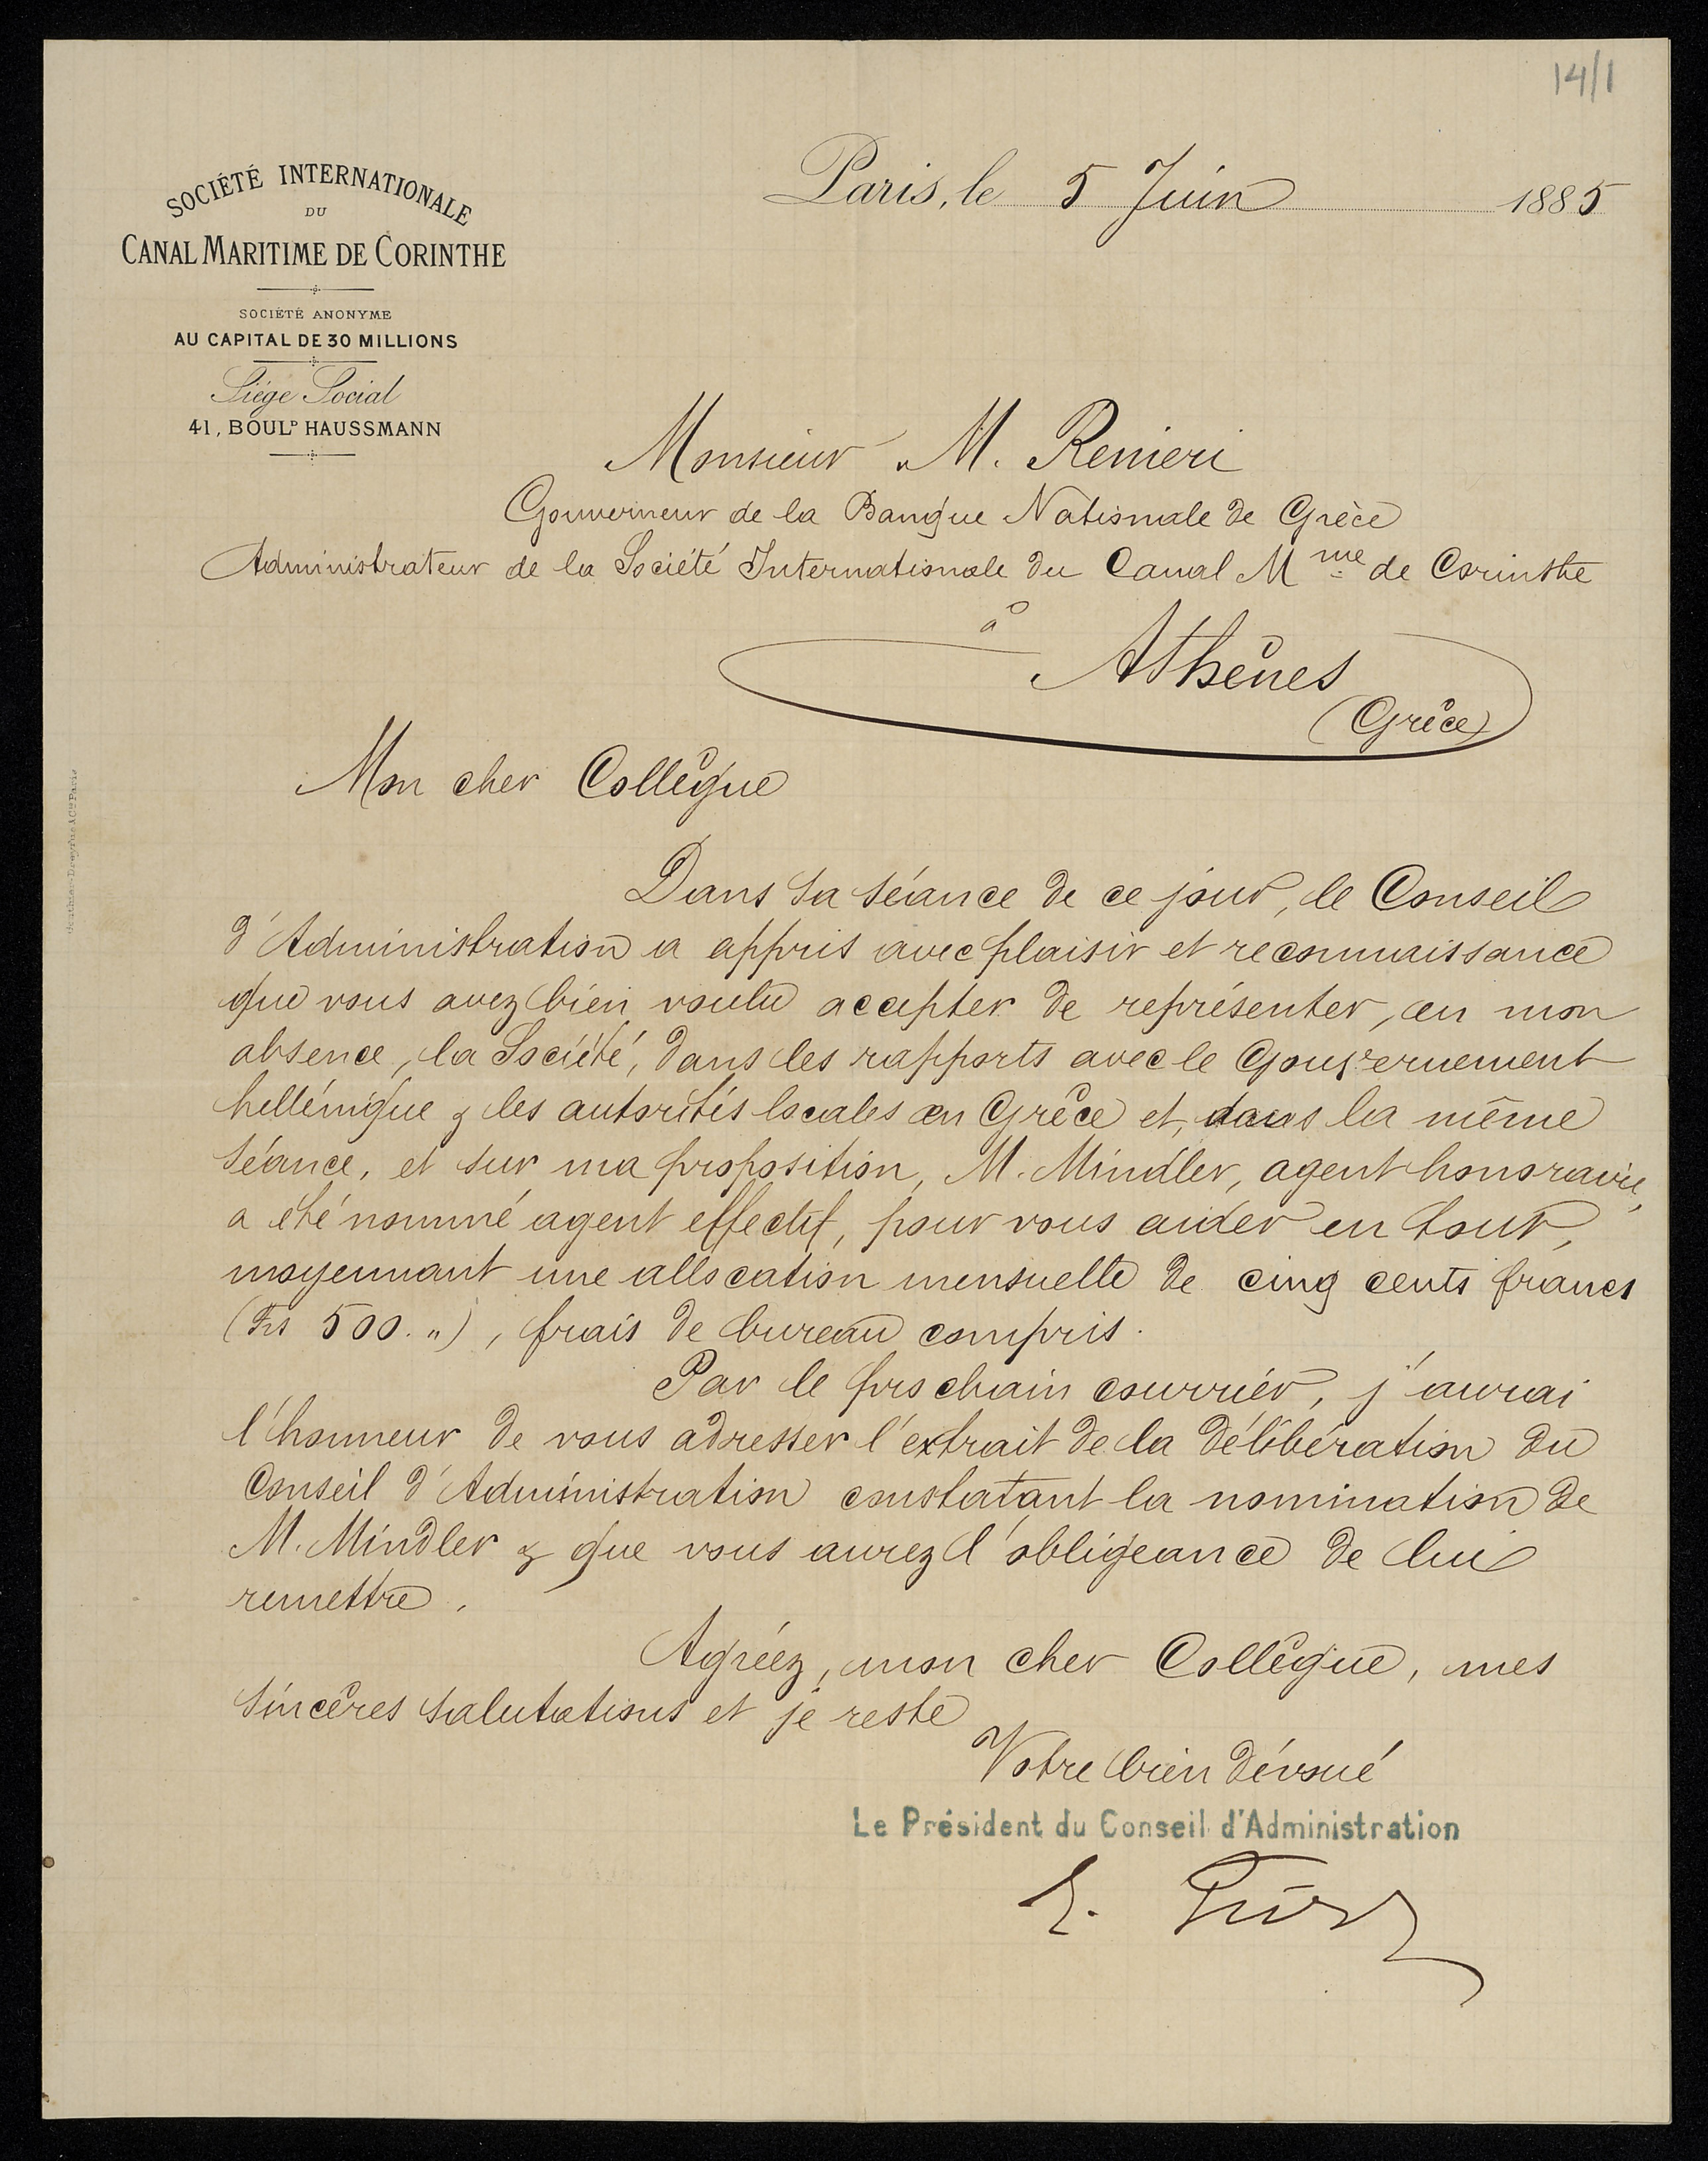 14/1
SOCIÉTÉ INTERNATIONALE
DU
CANAL MARITIME DE CORINTHE
SOCIÉTÉ ANONYME
AU CAPITAL DE 30 MILLIONS
Siége Social
41, BOULD HAUSSMANN
Paris, le 5 Juin 1885
Monsieur M. Renieri
Gouverneur de la Banque Nationale de Grèce
Administrateur de la Société Internationale du Canal Mme de Corinthe
à
Athènes
(Grèce)
Mon cher Collègue
Dans sa séance de ce jour, le Conseil
d'Administration a appris avec plaisir et reconnaissance
que vous avez bien voulu accepter de représenter, en mon
absence, la Société, dans les rapports avec le Gouvernement
hellénique & les autorités locales en Grèce et, dans la même
séance, et sur ma proposition, M. Mindler, agent honoraire,
a été nommé agent effectif, pour vous aider en tout,
moyennant une allocation mensuelle de cinq cents francs
(Frs 500. "), frais de bureau compris.
Par le prochain courrier, j'aurai
l'honneur de vous adresser l'extrait de la délibération du
Conseil d'Administration constatant la nomination de
M. Mindler & que vous aurez l'obligeance de lui
remettre.
Agréez, mon cher Collègue, mes
sincères salutations et je reste
Votre bien dévoué
Le Président du Conseil d'Administration